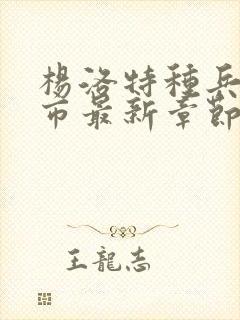 楊洛特種兵
市最新章節
王龍志